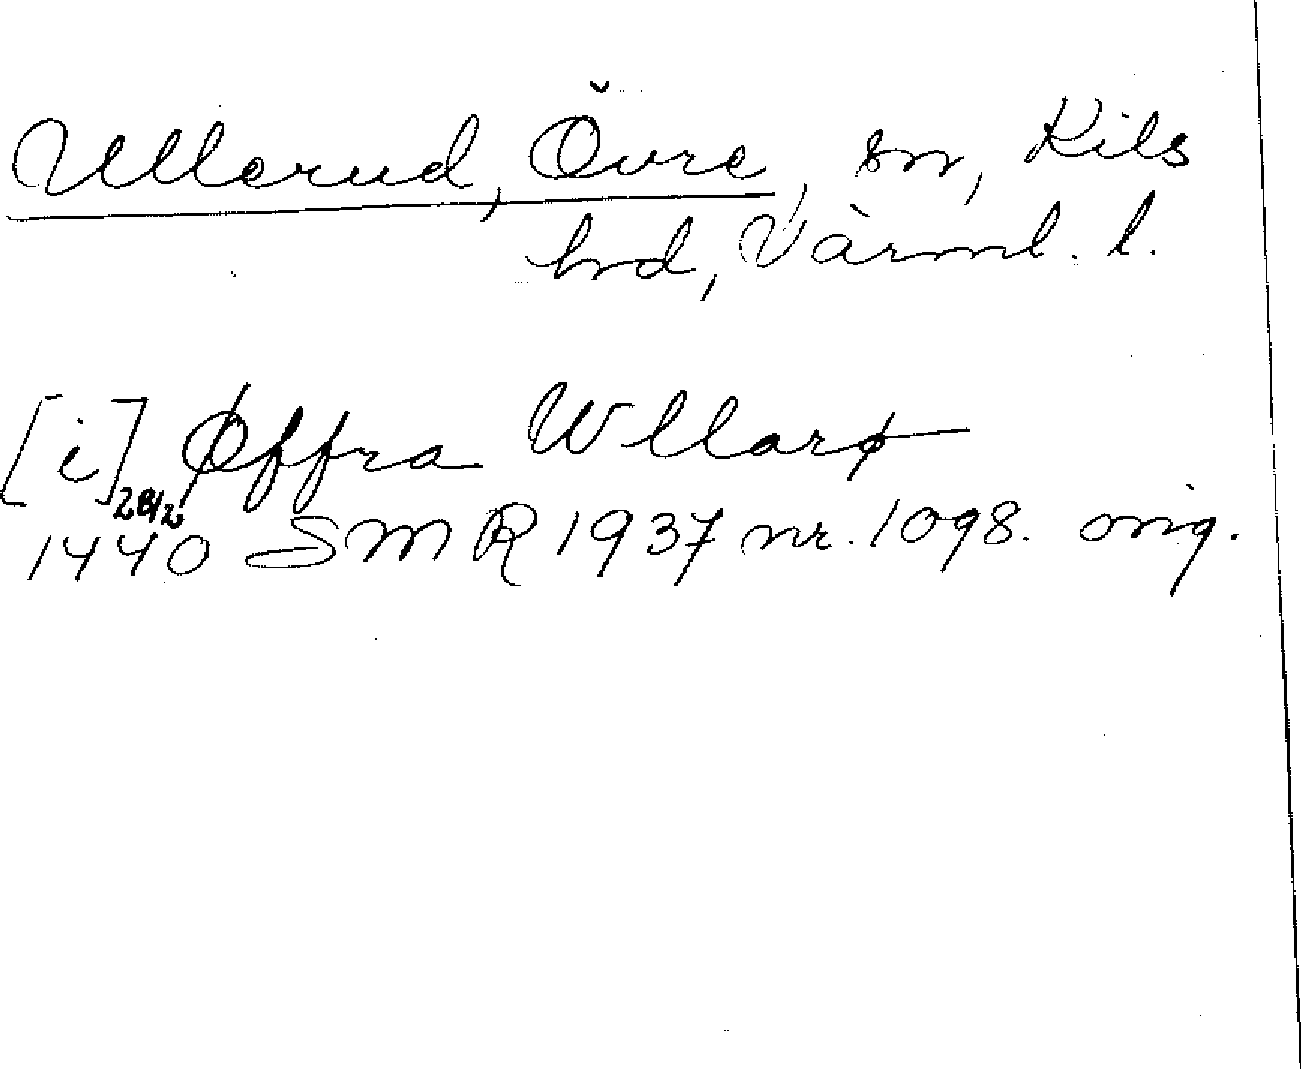 Ullerud, Övre, sn, Kils
hd, Värml. l.
[i] Øffra Wllarø
28/2
1440 SMR 1937 nr. 1098. orig.